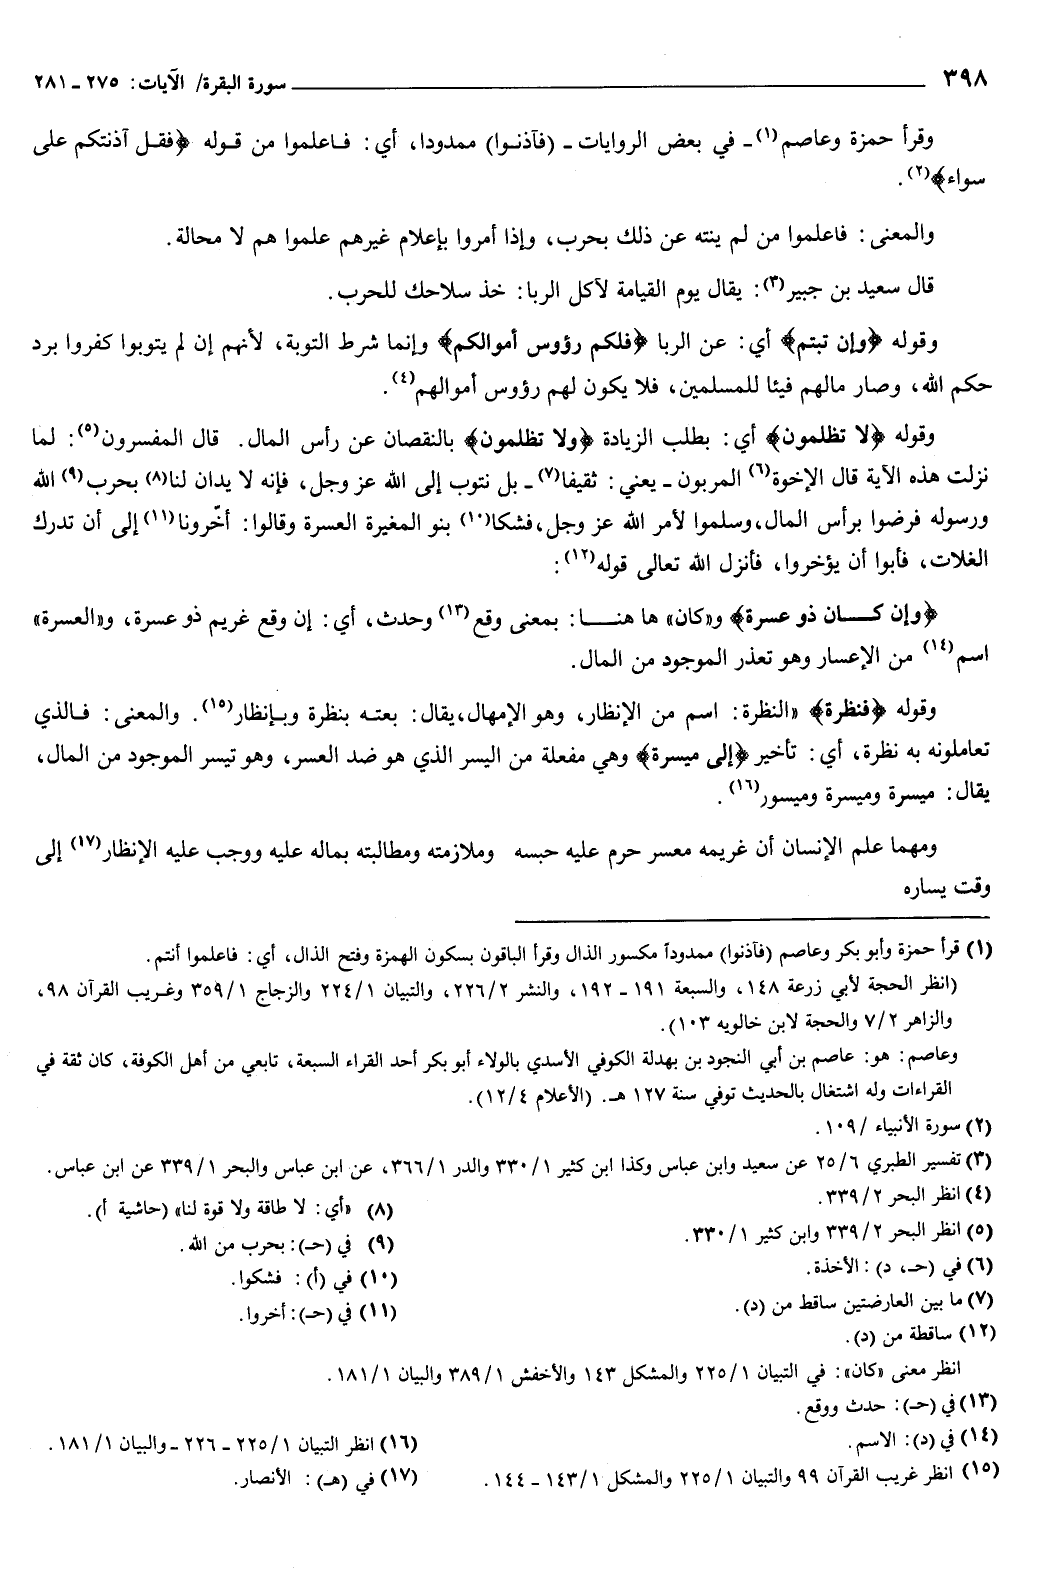 ٣٩٨ سورة البقرة/ الآيات: ٢٧٥ ـ ٢٨١
وقرأ حمزة وعاصم(١) ـ في بعض الروايات ـ (فآذنوا) ممدودا، أي: فاعلموا من قوله ﴿فقل آذنتكم على
سواء﴾(٢).
والمعنى: فاعلموا من لم ينته عن ذلك بحرب، وإذا أمروا بإعلام غيرهم علموا هم لا محالة.
قال سعيد بن جبير(٣): يقال يوم القيامة لآكل الربا: خذ سلاحك للحرب.
وقوله ﴿وإن تبتم﴾ أي: عن الربا ﴿فلكم رؤوس أموالكم﴾ وإنما شرط التوبة، لأنهم إن لم يتوبوا كفروا برد
حكم الله، وصار مالهم فيئا للمسلمين، فلا يكون لهم رؤوس أموالهم(٤).
وقوله ﴿لا تظلمون﴾ أي: بطلب الزيادة ﴿ولا تظلمون﴾ بالنقصان عن رأس المال. قال المفسرون(٥): لما
نزلت هذه الآية قال الإخوة(٦) المربون ـ يعني: ثقيفا(٧) ـ بل نتوب إلى الله عز وجل، فإنه لا يدان لنا(٨) بحرب(٩) الله
ورسوله فرضوا برأس المال، وسلموا لأمر الله عز وجل، فشكا(١٠) بنو المغيرة العسرة وقالوا: أخّرونا(١١) إلى أن تدرك
الغلات، فأبوا أن يؤخروا، فأنزل الله تعالى قوله(١٢):
﴿وإن كـــان ذو عسرة﴾ و«كان» ها هنـــا: بمعنى وقع(١٣) وحدث، أي: إن وقع غريم ذو عسرة، و«العسرة»
اسم(١٤) من الإعسار وهو تعذر الموجود من المال.
وقوله ﴿فنظرة﴾ «النظرة: اسم من الإنظار، وهو الإمهال، يقال: بعته بنظرة وبإنظار(١٥). والمعنى: فالذي
تعاملونه به نظرة، أي: تأخير ﴿إلى ميسرة﴾ وهي مفعلة من اليسر الذي هو ضد العسر، وهو تيسر الموجود من المال،
يقال: ميسرة وميسرة وميسور(١٦).
ومهما علم الإنسان أن غريمه معسر حرم عليه حبسه وملازمته ومطالبته بماله عليه ووجب عليه الإنظار(١٧) إلى
وقت يساره
(١) قرأ حمزة وأبو بكر وعاصم (فآذنوا) ممدوداً مكسور الذال وقرأ الباقون بسكون الهمزة وفتح الذال، أي: فاعلموا أنتم.
(انظر الحجة لأبي زرعة ١٤٨، والسبعة ١٩١ ـ ١٩٢، والنشر ٢/ ٢٢٦، والتبيان ١/ ٢٢٤ والزجاج ١/ ٣٥٩ وغريب القرآن ٩٨،
والزاهر ٢/ ٧ والحجة لابن خالويه ١٠٣).
وعاصم: هو: عاصم بن أبي النجود بن بهدلة الكوفي الأسدي بالولاء أبو بكر أحد القراء السبعة، تابعي من أهل الكوفة، كان ثقة في
القراءات وله اشتغال بالحديث توفي سنة ١٢٧ هـ. (الأعلام ٤/ ١٢).
(٢) سورة الأنبياء / ١٠٩.
(٣) تفسير الطبري ٦/ ٢٥ عن سعيد وابن عباس وكذا ابن كثير ١/ ٣٣٠ والدر ١/ ٣٦٦، عن ابن عباس والبحر ١/ ٣٣٩ عن ابن عباس.
(٤) انظر البحر ٢/ ٣٣٩.
(٥) انظر البحر ٢/ ٣٣٩ وابن كثير ١/ ٣٣٠.
(٦) في (حـ، د): الأخذة.
(٧) ما بين العارضتين ساقط من (د).
(٨) «أي: لا طاقة ولا قوة لنا» (حاشية أ).
(٩) في (حـ): بحرب من الله.
(١٠) في (أ): فشكوا.
(١١) في (حـ): أخروا.
(١٢) ساقطة من (د).
انظر معنى «كان»: في التبيان ١/ ٢٢٥ والمشكل ١٤٣ والأخفش ١/ ٣٨٩ والبيان ١/ ١٨١.
(١٣) في (حـ): حدث ووقع.
(١٤) في (د): الاسم.
(١٥) انظر غريب القرآن ٩٩ والتبيان ١/ ٢٢٥ والمشكل ١/ ١٤٣ ـ ١٤٤.
(١٦) انظر التبيان ١/ ٢٢٥ ـ ٢٢٦ ـ والبيان ١/ ١٨١.
(١٧) في (هـ): الأنصار.